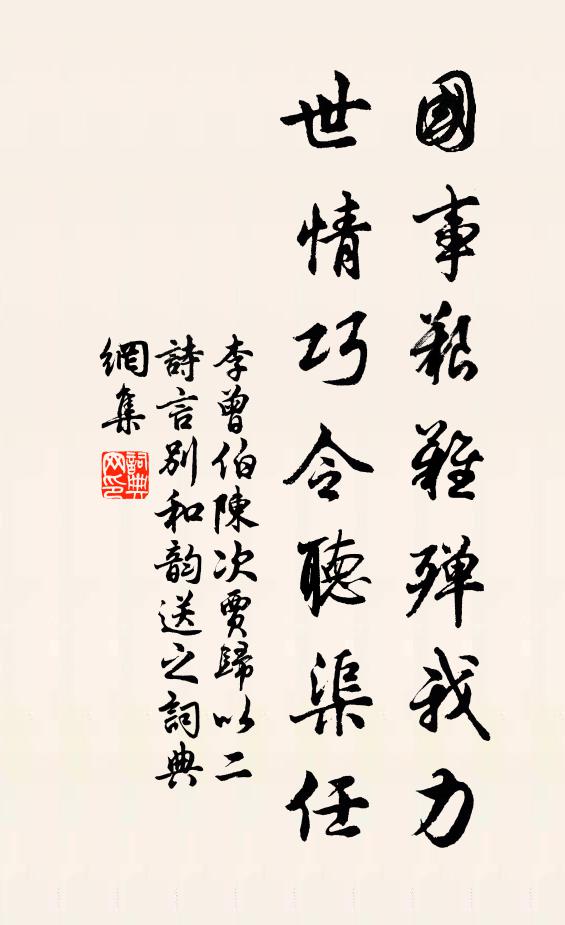 國事艱難殫我力
世情巧令聽渠任
李曾伯陳次賈歸以二
詩言別和韵送之詞典
網集
詞典
网印